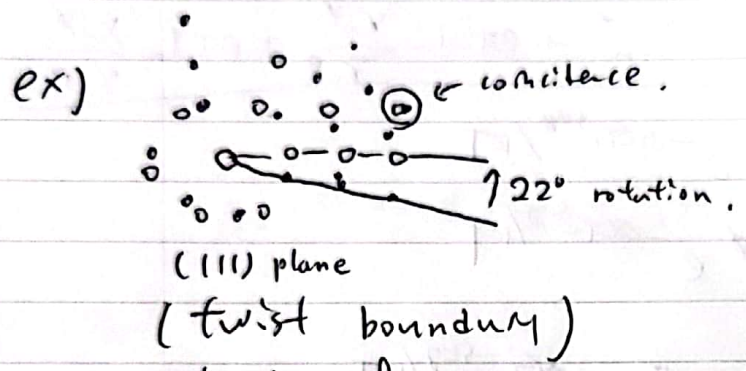 ex)
← comcitence.
22° rotation.
(111) plane
(twist boundary)